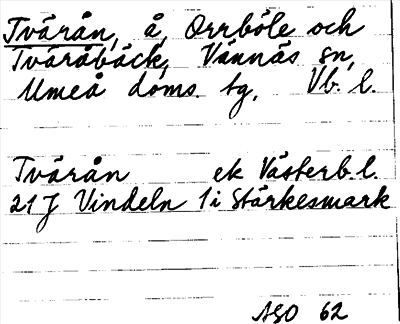 Tvärån, å, Orrböle och
Tväråbäck, Vännäs sn,
Umeå doms. tg. Vb. l.
Tvärån ek Västerb. l.
21 J Vindeln 1 i Stärkesmark
ASO 62